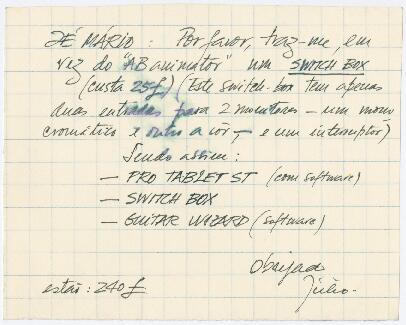 ZÉ MÁRIO: Por favor, traz-me, em
vez do "AB animator" um SWITCH BOX
(custa 25£) (Este switch-box tem apenas
duas entradas para 2 monitores - um mono
cromático e outro a côr, e um interruptor)
Sendo assim:
- PRO TABLET ST (com software)
- SWITCH BOX
- GUITAR WIZARD (software)
Obrigado
Júlio.
estão: 240£